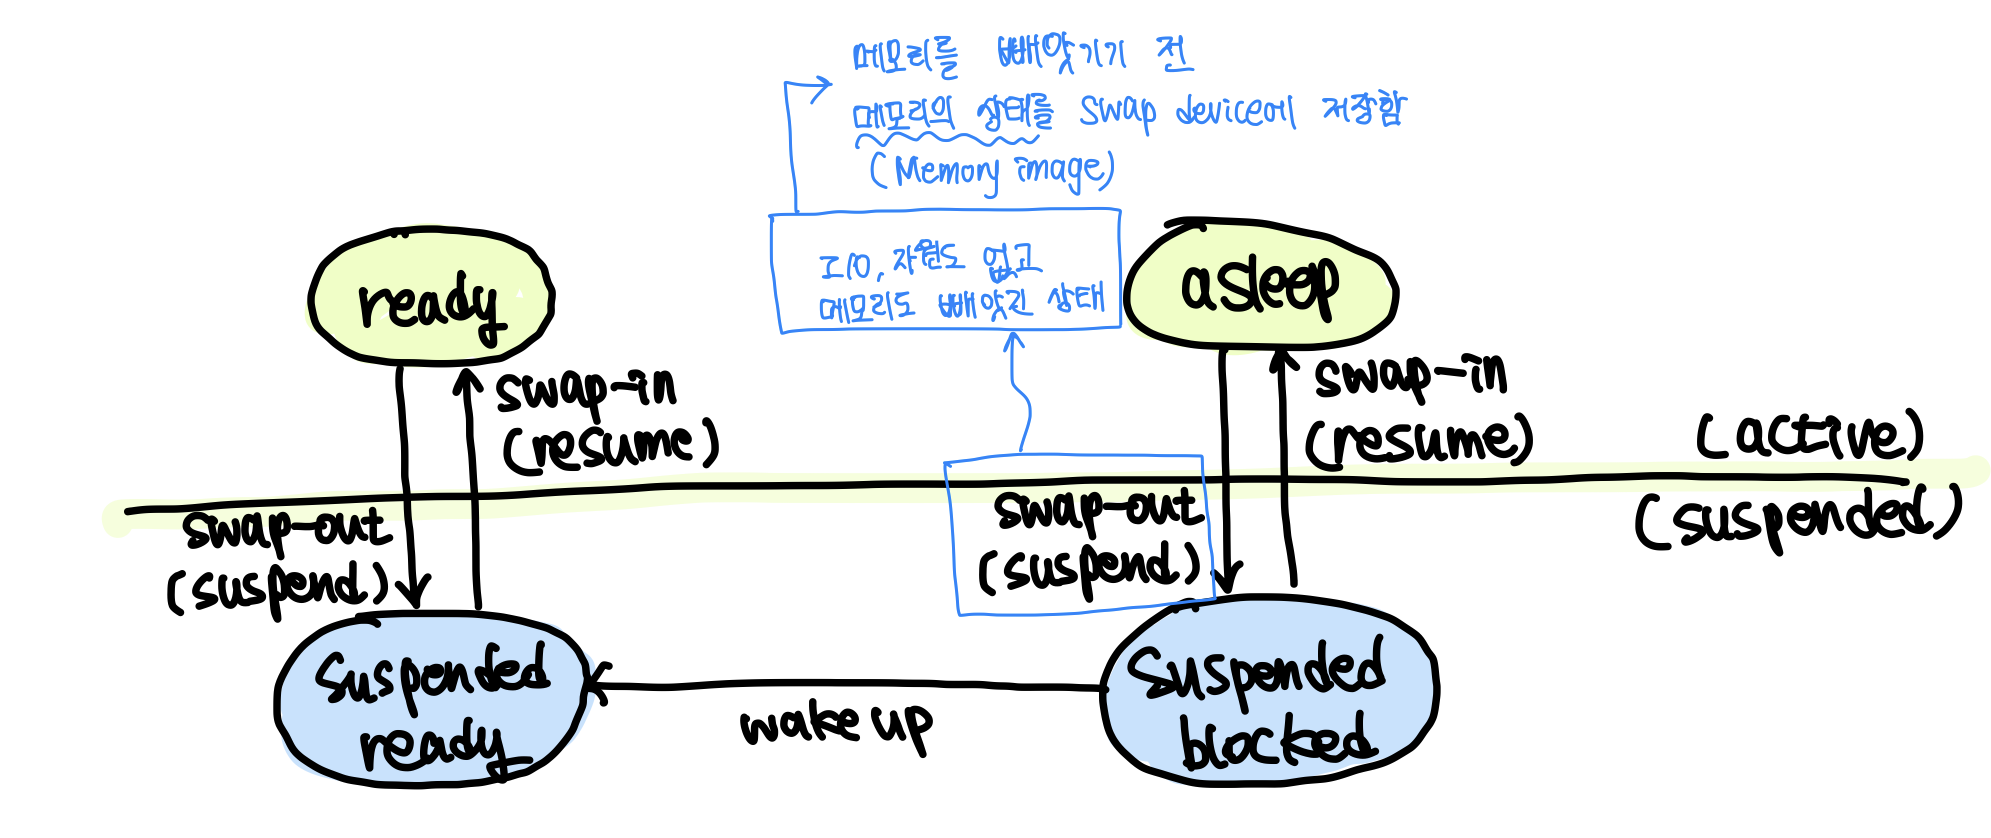 메모리를 빼앗기기 전
메모리의 상태를 swap device에 저장함
(Memory image)
I/O, 자원도 없고
메모리도 빼앗긴 상태
ready
asleep
swap-in
(resume)
swap-in
(resume)
(active)
swap-out
(suspend)
swap-out
(suspend)
(suspended)
suspended
ready
wake up
suspended
blocked